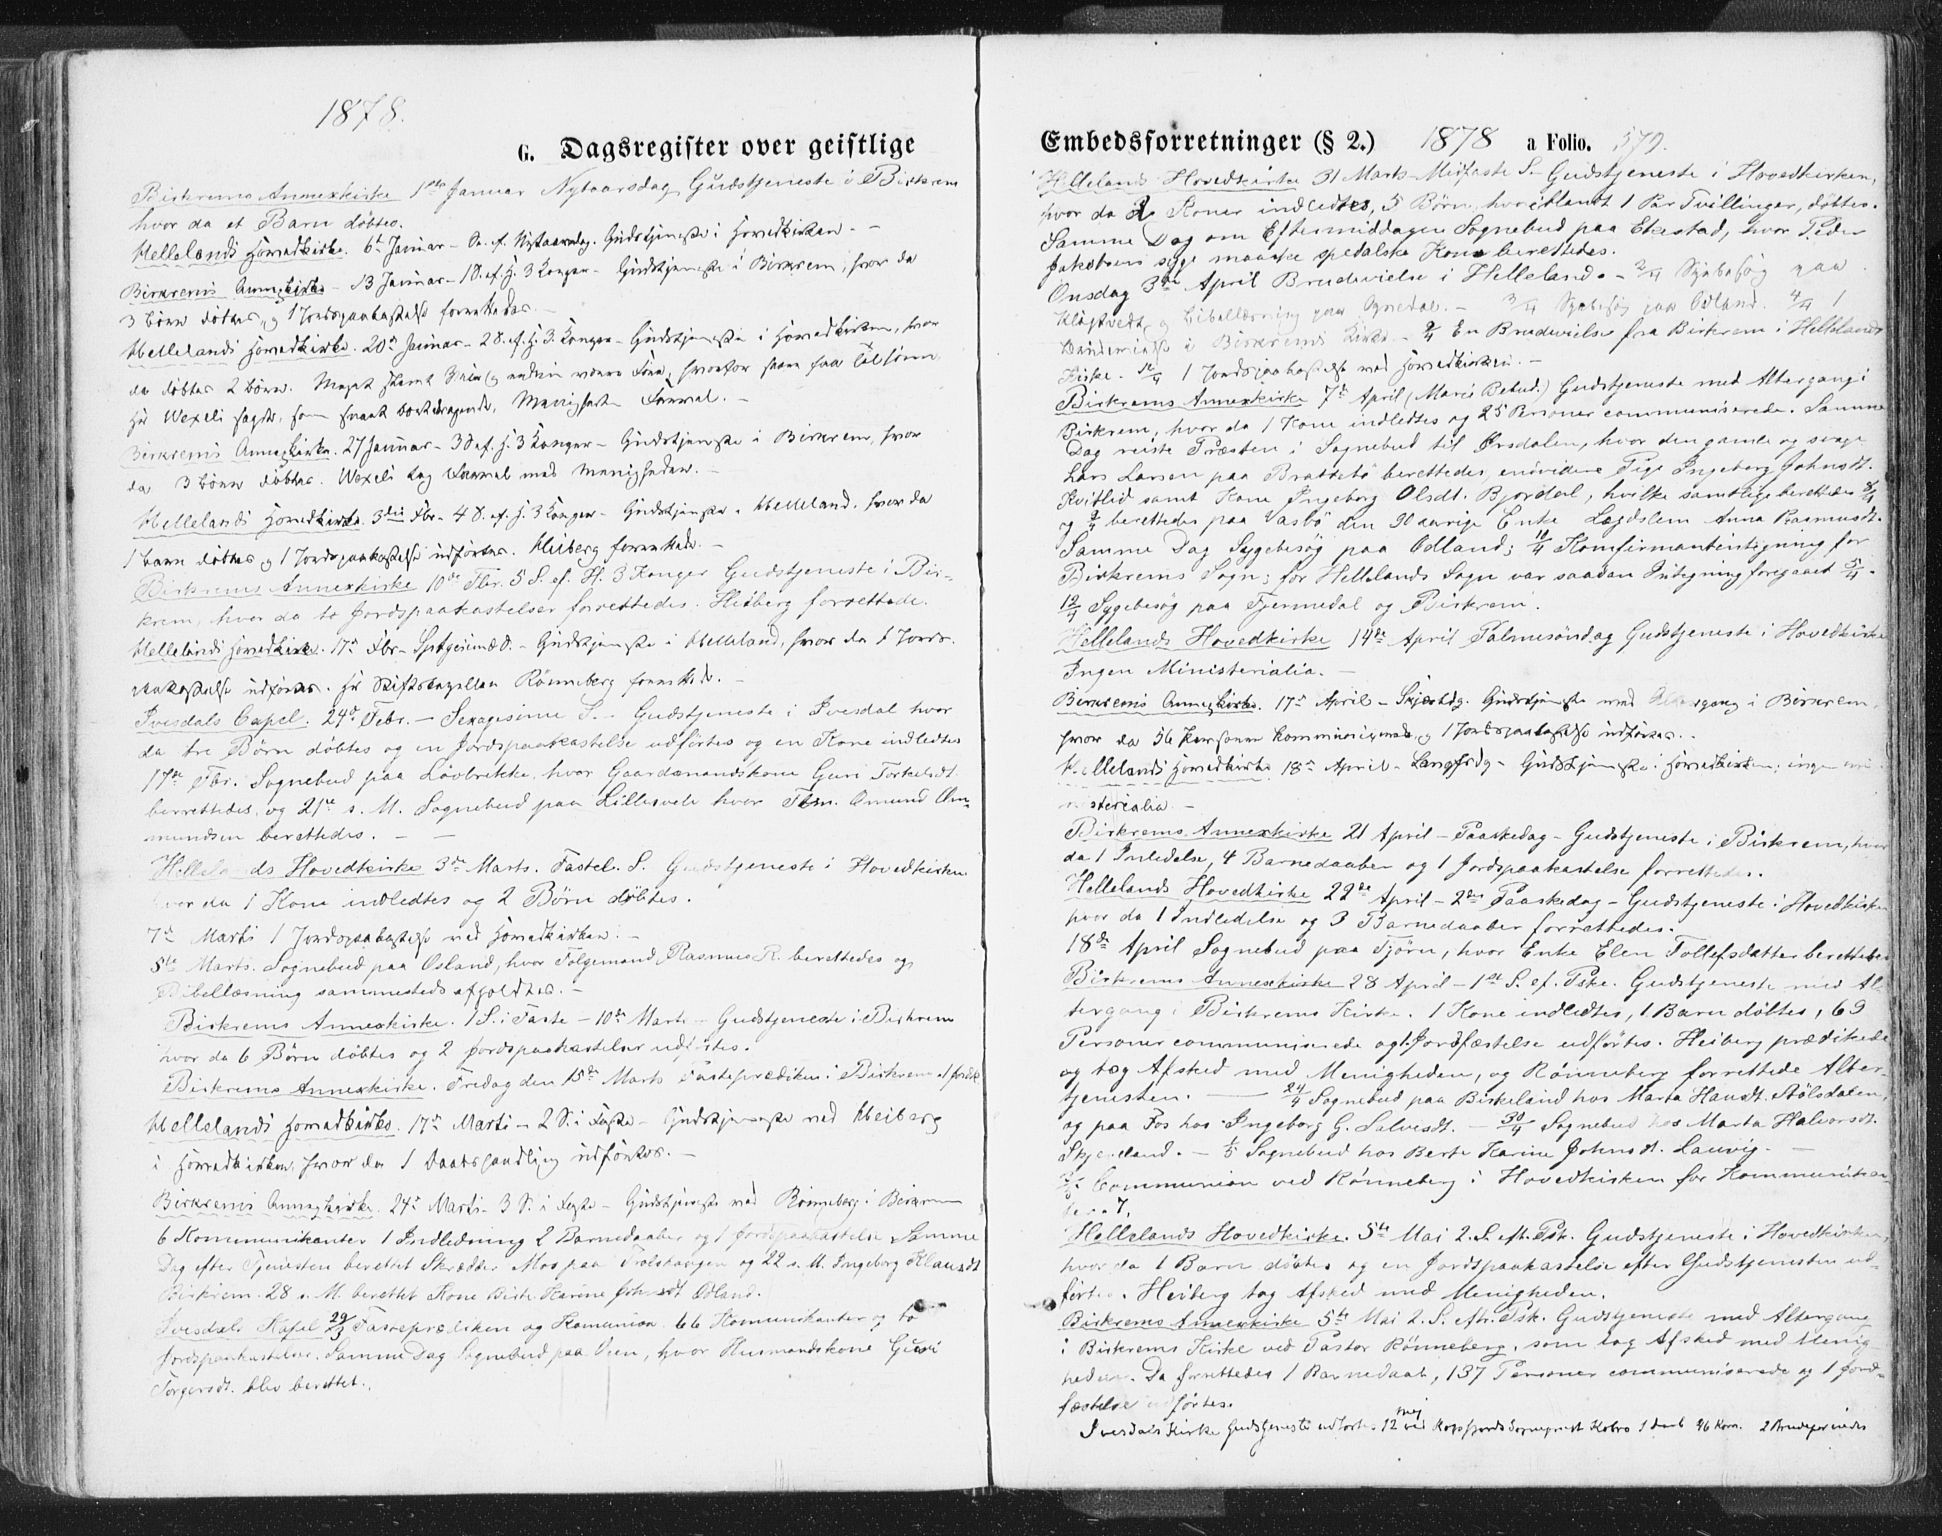 1878.
G. Dagsregister over geistlige
Birkrems Annexkirke 1ste Januar Nytaarsdag Gudstjeneste i Birkrem
hvor da et Barn døbtes.
Hellelands Hovedkirke. 6te Januar - S. ef. Nytaarsdag. Gudstjeneste i Hovedkirken. -
Birkrems Annexkirke - 13 Januar - 1 S. ef. H. 3 Konger - Gudstjeneste i Birkrem, hvor da
3 Børn døbtes, og 1 Jordspaakastelse forrettedes. -
Hellelands Hovedkirke. 20de Januar - 2 S. ef. H. 3 Konger - Gudstjeneste i Hovedkirken, hvor
da døbtes 2 Børn. Meget stærk
Hr Wexels Menighed Farvel. -
Birkrems Annexkirke. 27 Januar - 3 S. ef. H. 3 Konger - Gudstjeneste i Birkrem, hvor
da 3 Børn døbtes. Wexels tog Farvel med Menigheden. -
Hellelands Hovedkirke 3die Fbr. - 4 S. ef. H. 3 Konger - Gudstjeneste i Helleland, hvor da
1 Barn døbtes og 1 Jordspaakastelse udførtes. Heiberg forrettede. -
Birkrems Annexkirke 10de Fbr. 5 S. ef. H. 3 Konger Gudstjeneste i Bir-
krem, hvor da to Jordspaakastelser forrettedes. Heiberg forrettede.
Hellelands Hovedkirke. 17de Fbr - Septuagesima S. - Gudstjeneste i Helleland, hvor da 1 Jords-
paakastelse udførtes. Hr Stiftskapellan Rönneberg forrettede. -
Ivesdals Capel. 24de Febr. - Sexagesima S. - Gudstjeneste i Ivesdal hvor
da tre Børn døbtes og en Jordspaakastelse udførtes og en Kone indledtes
17de Fbr. Sognebud paa Løvbrikke, hvor Gaardmandskone Guri Torkelsdt.
berettedes, og 21de s. M. Sognebud paa Lillesvele hvor Flm. Omund Om-
mundsen berettedes. - -
Hellelands Hovedkirke 3de Marts. Fastel. S. Gudstjeneste i Hovedkirken
hvor da 1 Kone indledtes og 2 Børn døbtes.
7de Marts 1 Jordspaakastelse ved Hovedkirken. -
5te Marts. Sognebud paa Osland, hvor Følgemand Rasmus R. berettedes og
Bibellæsning sammesteds afholdtes. -
Birkrems Annexkirke. 1 S. i Faste - 10de Marts - Gudstjeneste i Birkrem
hvor da 6 Børn døbtes og 2 Jordspaakastelser udførtes.
Birkrems Annexkirke. Fredag den 15de Marts Fasteprædiken i Birkrem
Hellelands Hovedkirke. 17de Marts - 2 S. i Faste - Gudstjeneste ved Heiberg
i Hovedkirken, hvor da 1 Daabshandling udførtes. -
Birkrems Annexkirke. 24de Marts - 3 S. i Faste - Gudstjeneste ved Rönneberg i Birkrem
6 Kommunikanter 1 Indledning 2 Barnedaaber og 1 Jordspaakastelse Samme
Dag efter Tjenesten berettet Skrædder Mos paa Trolshaugen og 22 s. M. Ingeborg Klausdt
Birkrem. 28 s. M. berettet Kone Berte Karine Johnsdt Odland.
Ivesdals Kapel 29/3 Fasteprædiken og Komunion. 66 Komunikanter og to
Jordspaakastelser. Samme Dag Sognebud paa Oen, hvor Husmandskone Guri
Torgersdt. blev berettet.
Embedsforretninger (§ 2.) 1878 a Folio. 579.
Hellelands Hovedkirke 31 Marts - Midfaste S. - Gudstjeneste i Hovedkirken,
hvor da 2 Koner indledtes, 5 Børn, hvoriblandt 1 Par Tvillinger, døbtes.
Samme Dag om Eftermiddagen Sognebud paa Ekestad, hvor Peder
Jakobsens syge maaske spedalske Kone berettedes.
Onsdag 3de April Brudevielse i Helleland. - 2/4 Sygebesøg paa
og Bibellæsning paa Ognedal. - 3/4 Sygebesøg paa Odland. 4/4 1
Brudevielse i Birkrems Kirke - 9/4 En Brudevielse fra Birkrem i Hellelands
Kirke. 12/4 1 Jordspaakastelse ved Hovedkirken. -
Birkrems Annexkirke 7de April (Mariæ Bebud.) Gudstjeneste med Altergang i
Birkrem, hvor da 1 Kone indledtes og 25 Personer communiserede. Samme
Dag reiste Præsten i Sognebud til Ørsdalen, hvor den gamle og svage
Lars Larsen paa Brattebø berettedes, endvidere Pige Ingeborg Johnsdt.
Kvitlid samt Kone Ingeborg Olsdt. Bjordal, hvilke samtlige berettedes 8/4
og 9/4 berettedes paa Vasbø den 90 aarige Enke Lægdslem Anna Rasmusdt.
Samme Dag Sygebesøg paa Odland; 10/4 Konfirmantindtegning for
Birkrems Sogn; for Hellelands Sogn var saadan Indtegning foregaaet 5/4.
12/4 Sygebesøg paa Tjernedal og Birkrem.
Hellelands Hovedkirke 14de April Palmesøndag Gudstjeneste i Hovedkirke
Ingen Ministerialia. -
Birkrems Annexkirke. 17de April - Skjærtdg. Gudstjeneste med Altergang i Birkrem,
hvor da 56 Personer kommunicerede, og 1 Jordspaakastelse udførtes. -
Hellelands Hovedkirke 18de April - Langfrdg - Gudstjeneste i Hovedkirken; ingen mi-
nisterialia. -
Birkrems Annexkirke 21 April - Paaskedag - Gudstjeneste i Birkrem, hvor
da 1 Indledelse, 4 Barnedaaber og 1 Jordspaakastelse forrettedes.
Hellelands Hovedkirke 22de April - 2den Paaskedag - Gudstjeneste i Hovedkirken
hvor da 1 Indledelse og 3 Barnedaaber forrettedes.
18de April Sognebud paa Tjørn, hvor Enke Elen Tollefsdatter berettedes
Birkrems Annexkirke 28 April - 1ste S. ef. Pske. Gudstjeneste med Al-
tergang i Birkrems Kirke. 1 Kone indledtes, 1 Barn døbtes, 69
Personer communiserede og 1 Jordfæstelse udførtes. Heiberg prædikede
og tog Afsked med Menigheden, og Rönneberg forrettede Alter-
tjenesten. - 24/4 Sognebud paa Birkeland hos Marta Hansdt. Stölsdalen,
og paa Fos hos Ingeborg G. Salvesdt. - 30/4 Sognebud hos Marta Halvorsdt.
Skjerland. - 1/5 Sognebud hos Berte Karine Johnsdt. Lauvig. -
Communion ved Rönneberg i Hovedkirken for Kommunitan
7.
Hellelands Hovedkirke. 5te Mai 2. S. eft. Psk. Gudstjeneste i Hovedkirken,
hvor da 1 Barn døbtes og en Jordspaakastelse efter Gudstjenesten ud-
førtes. Heiberg tog Afsked med Menigheden.
Birkrems Annexkirke 5te Mai 2. S. eftr. Psk. Gudstjeneste med Altergang
i Birkrems Kirke ved Pastor Rönneberg, som tog Afsked med Menig-
heden. Da forrettedes 1 Barnedaab, 137 Personer communiserede og 1 Jord-
fæstelse udførtes.
Ivesdals Kirke Gudstjeneste udførtes 12 Mej ved Sogneprest Kobro 1 daab 46 Kom.